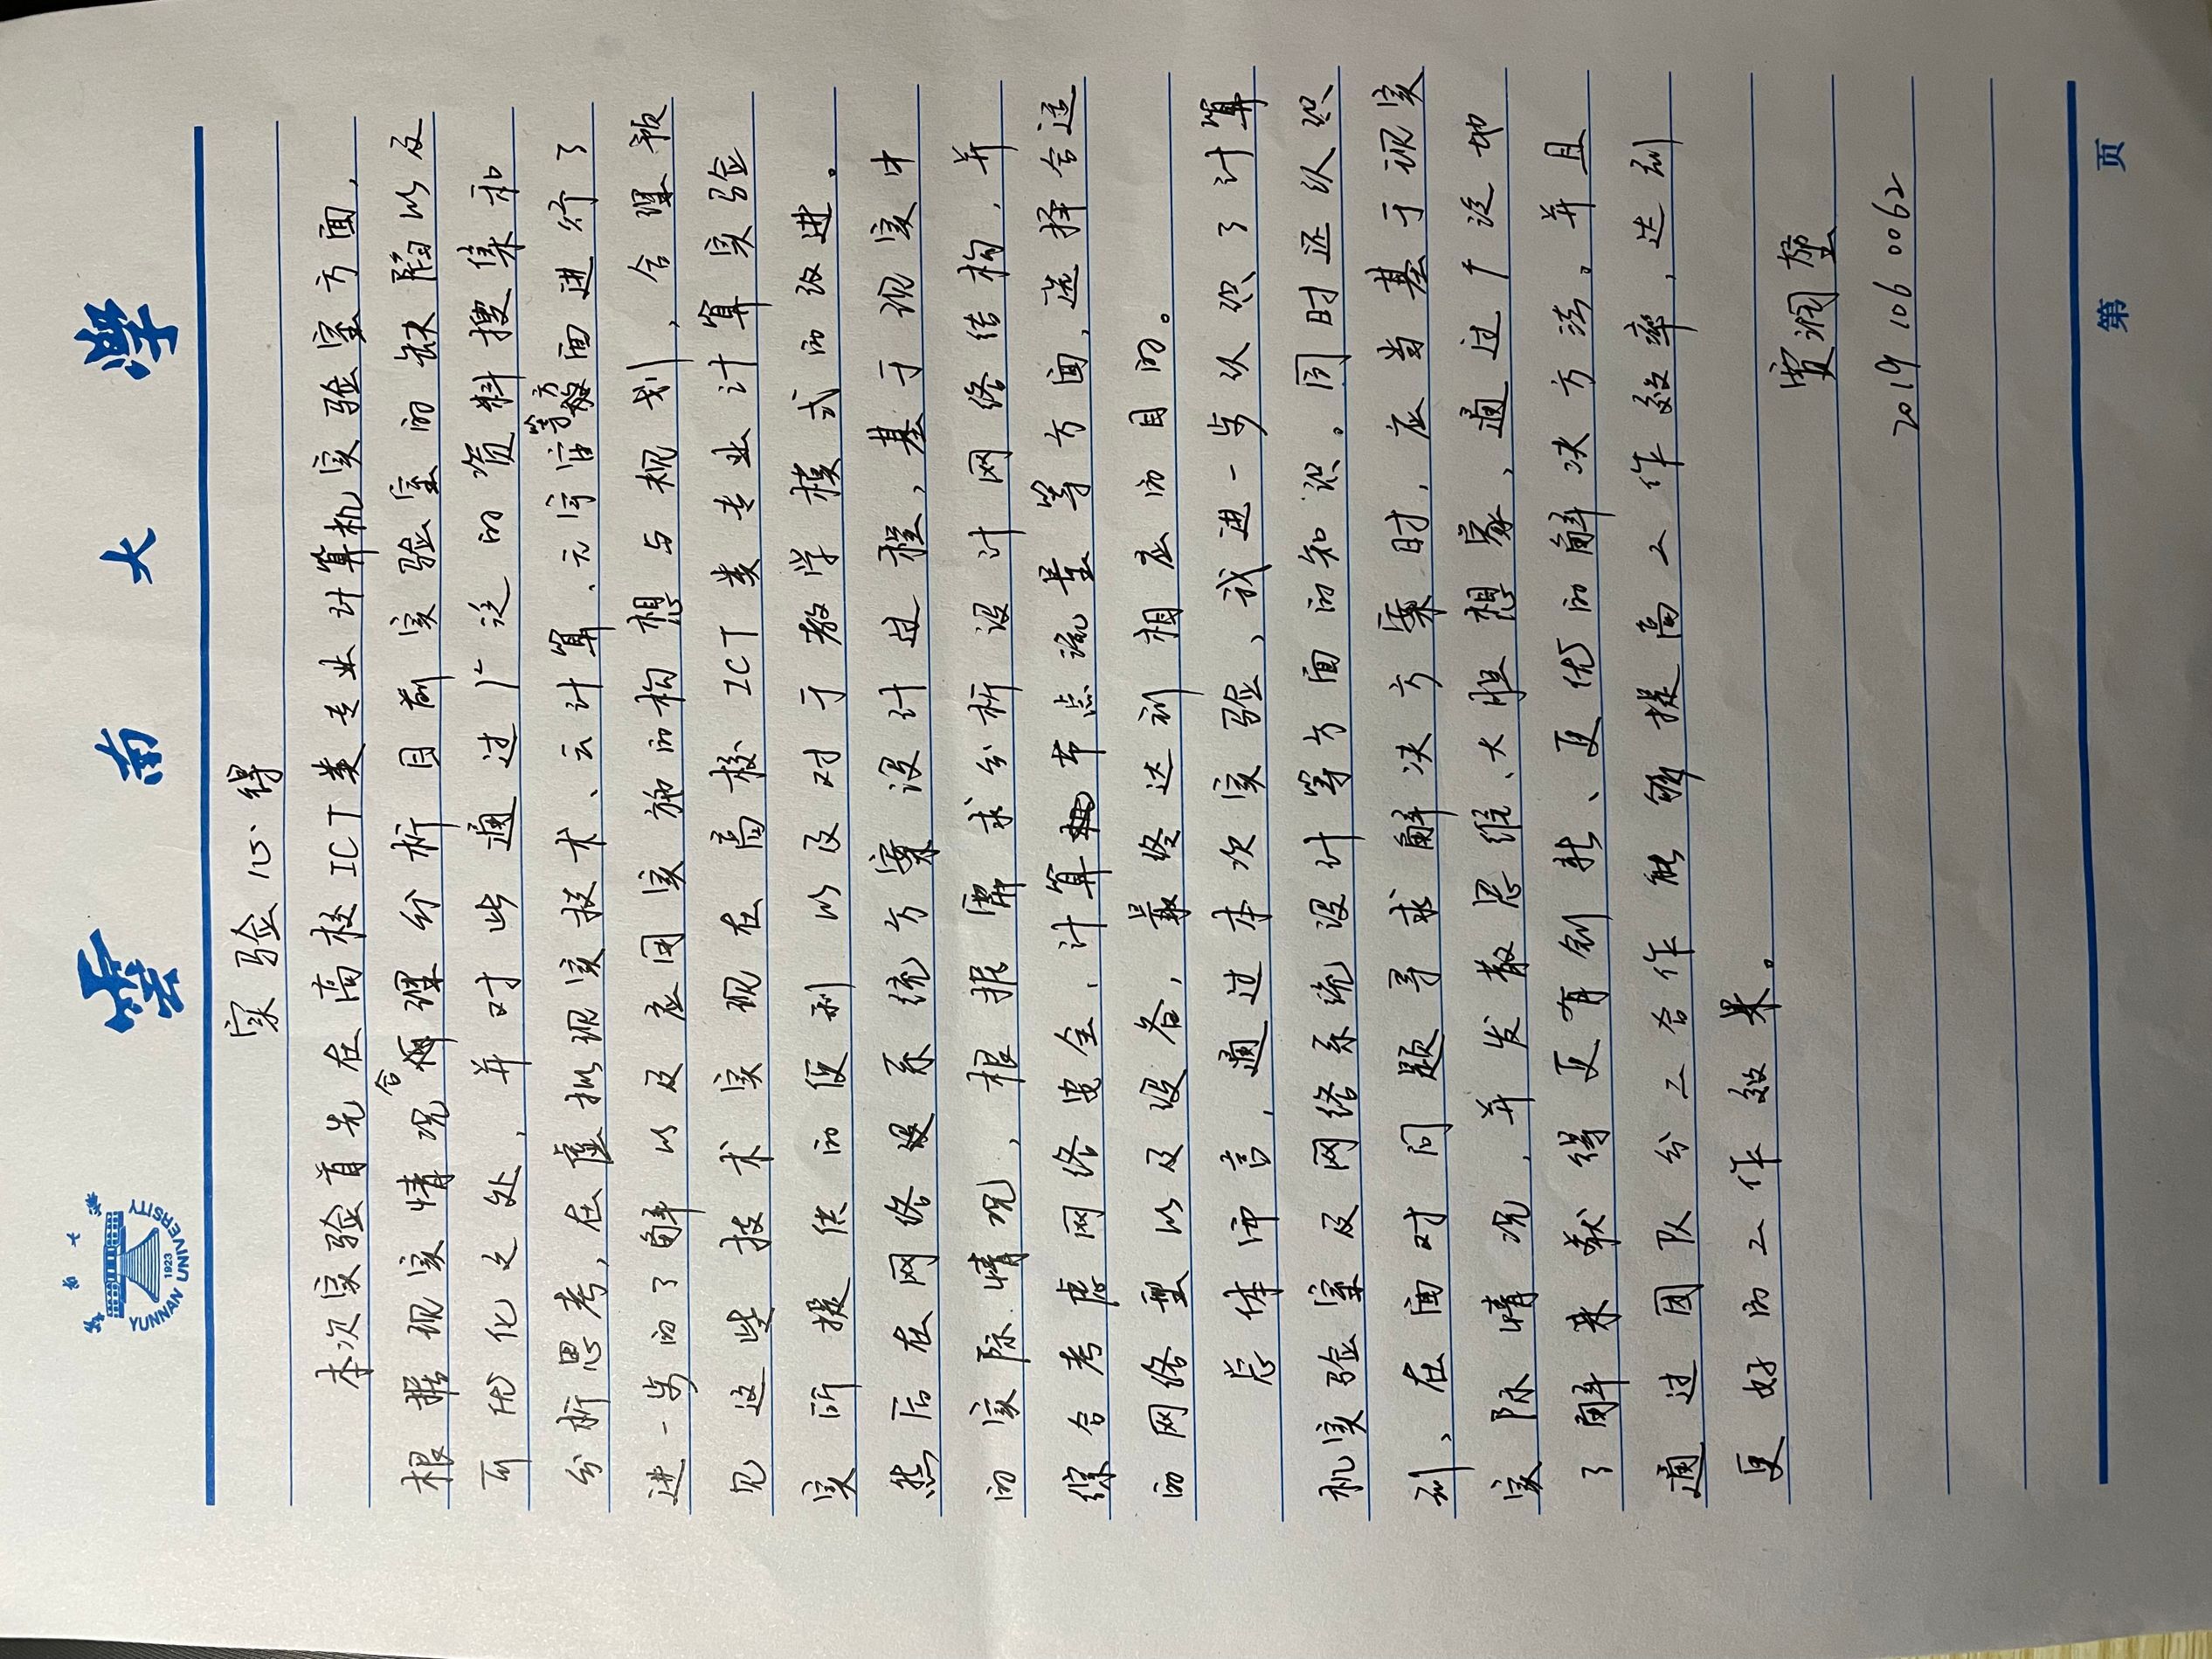 雲南大學
YUNNAN UNIVERSITY
1923
实验心得
本次实验首先在高校ICT类专业计算机实验室方面,
根据现实情况合理分析目前实验室的缺陷以及
可优化之处,并对此通过广泛的资料搜集和
分析思考,在虚拟现实技术、云计算、元宇宙等方面进行了
进一步的了解以及应用实施的构想与规划,合理预
见这些技术实现在高校ICT类专业计算实验
实所提供的便利以及对于教学模式的改进。
然后在网络系统方案设计过程,基于现实中
的实际情况,根据需求分析设计网络结构,并
综合考虑网络安全、计算节点流量等方面,选择合适
的网络型以及设备,最终达到相应的目的。
总体而言,通过本次实验,我进一步认识了计算
机实验室及网络系统设计等方面的知识。同时还认识
到,在面对问题寻求解决方案时,应当基于现实
实际情况,并发散思维、大胆想象,通过广泛地
了解来获得更有创新、更优的解决方法。并且
通过团队分工合作能够提高工作效率,达到
更好的工作效果。
贾润
20191060062
第 页